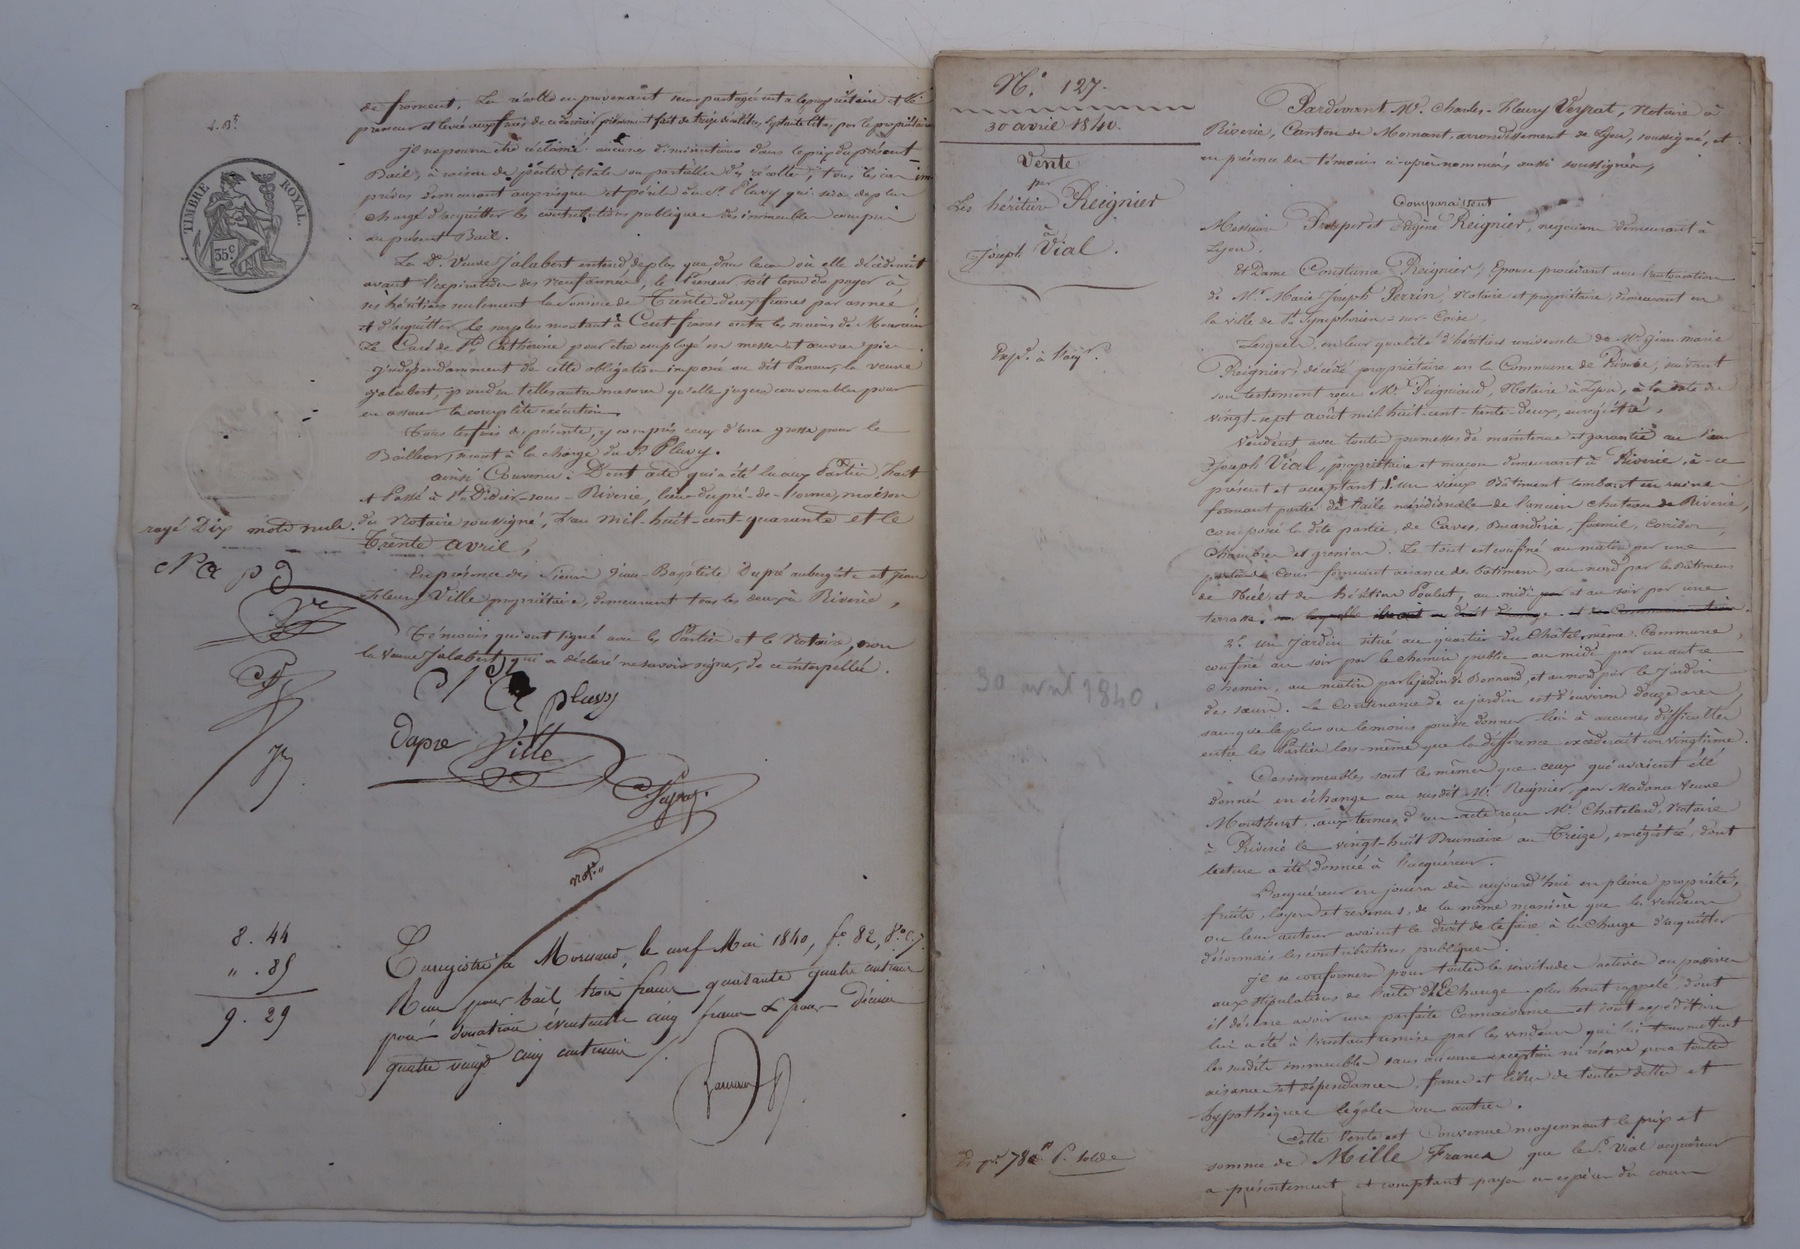 de froment. La récolte en provenant sera partagée entre le propriétaire et le
preneur et levée aux frais de ce dernier
Il ne pourra être réclamé aucunes diminutions dans le prix du présent
Bail, à raison de pertes totales ou partielles des récoltes, tous les cas im-
prévus demeurant aux risques et périls du Sr Pluvy qui sera de plus
chargé d'acquitter les contributions publiques des immeubles compris
au présent Bail.
La De Veuve Jalabert entend de plus que dans le cas où elle décéderait
avant l'expiration des neuf années, le Preneur soit tenu de payer à
ses héritiers seulement la somme de Trente-deux francs par année
et d'acquitter le surplus montant à Cent francs entre les mains de Monsieur
Le Curé de Ste Catherine pour être employé en messes et œuvres pies.
Indépendamment de cette obligation imposée au dit Preneur, la veuve
Jalabert, prendra telles autres mesures qu'elle jugera convenables pour
en assurer la complète exécution.
Tous les frais des présentes, y compris ceux d'une grosse pour le
Bailleur, seront à la charge du Sr Pluvy.
Ainsi Convenu. Dont acte qui a été lu aux Parties. Fait
et Passé à St Didier-sous-Riverie, lieu du pré-de-lorme, maison
du Notaire soussigné, L'an mil-huit-cent-quarante et le
Trente avril,
En présence des Sieurs Jean-Baptiste Dupré aubergiste et Jean
Fleury Ville propriétaire, demeurant tous les deux à Riverie,
Témoins qui ont signé avec les Parties et le Notaire, non
la Veuve Jalabert, qui a déclaré ne savoir signer, de ce interpellée.
TIMBRE ROYAL
35 c
rayé Dix mots nuls.
pluvy
Dupre Ville
Veyrat
not.re
8. 44
". 85
9. 29
Enregistré à Mornand, le neuf Mai 1840, fo 82, Ro c. 7.
Reçu pour bail trois francs quarante quatre centimes
pour donation éventuelle cinq francs & pour Décime
quatre vingt cinq centimes
No 127.
30 avril 1840.
Vente
par
Les héritiers Reignier
à
Joseph Vial.
30 avril 1840.
P. solde
Pardevant Me Charles-Fleury Veyrat, Notaire à
Riverie, Canton de Mornant, arrondissement de Lyon, soussigné, et
en présence des témoins ci-après nommés, aussi soussignés,
Comparaissent
Messieurs Prosper et Eugène Reignier, négociants demeurant à
Lyon.
Et Dame Constance Reignier, Epouse procédant avec l'autorisation
de Mr Marie Joseph Perrin, Notaire et propriétaire, demeurant en
la ville de St Symphorien-sur-Coise,
Lesquels, en leur qualité d'héritiers universels de Mr Jean-marie
Reignier, décédé propriétaire en la Commune de Riverie, suivant
son testament reçu Me Reigniard, Notaire à Lyon, à la date du
vingt-sept août mil-huit-cent-trente-deux, enregistré,
Vendent avec toutes promesses de maintenue et garantie au Sieur
Joseph Vial, propriétaire et maçon demeurant à Riverie, à ce
présent et acceptant, 1o un vieux Bâtiment tombant en ruines
formant partie de l'aile méridionale de l'ancien château de Riverie,
composée la dite partie, de Caves, Buanderie, fournil, corridor,
Chambres et greniers. Le tout est confiné au matin par une
petite Cour formant aisance des bâtiments, au nord par les bâtiments
de Néel et des héritiers Poulat, au midi et au soir par une
terrasse.
2o un Jardin situé au quartier du Châtel, même Commune,
confiné au soir par le chemin public au midi par un autre
chemin, au matin par le jardin de Bonnand, et au nord par le Jardin
des sœurs. La Contenance de ce jardin est d'environ douze ares,
sans que le plus ou le moins puisse donner lieu à aucunes difficultés
entre les Parties lors-même que la différence excèderait un vingtième.
Ces immeubles sont les mêmes que ceux qui avaient été
donnés en échange au susdit Mr Reignier, par Madame Veuve
Montherot, aux termes d'un acte reçu Me Chateland, Notaire
à Riverie le vingt-huit Brumaire an Treize, enregistré, dont
lecture a été donnée à l'acquéreur.
L'acquéreur en jouira dès aujourd'hui en pleine propriété,
fruits, loyers et revenus, de la même manière que les vendeurs
ou leur auteur avaient le droit de le faire à la Charge d'acquitter
désormais les contributions publiques.
Il se conformera pour toutes les servitudes actives ou passives
aux stipulations de l'acte d'Echange plus haut rappelé, dont
il déclare avoir une parfaite connaissance et dont expédition
lui a été à l'instant remise par les vendeurs qui lui transmettent
les susdits immeubles sans aucune exception ni réserve avec toutes
aisances et dépendances, francs et libres de toutes dettes et
hypothèques légales ou autres.
Cette Vente est Convenue moyennant le prix et
somme de Mille Francs que le Sr Vial acquéreur
a présentement et comptant payée en espèces du cours